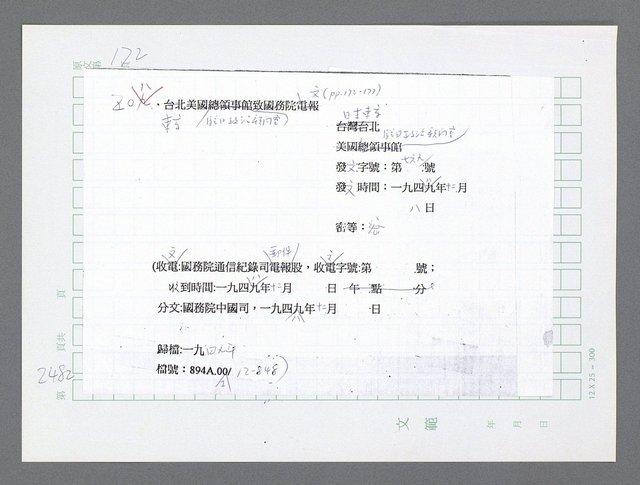 原文第 122
文(pp.172-177)
台北美國總領事館致國務院電報
東京
日本東京
台灣台北
美國總領事館
發文字號：第 號
發文時間：一九四九年十二月
八日
密等：密
文 郵件 文
(收電:國務院通信紀錄司電報股，收電字號:第 號；
收到時間:一九四九年十二月 日 午 點 分
分文:國務院中國司，一九四九年十二月 日
歸檔:一九四九年
檔號：894A.00/12-848)
頁
頁共
第 2482
12 X 25 = 300
文 範
年 月 日